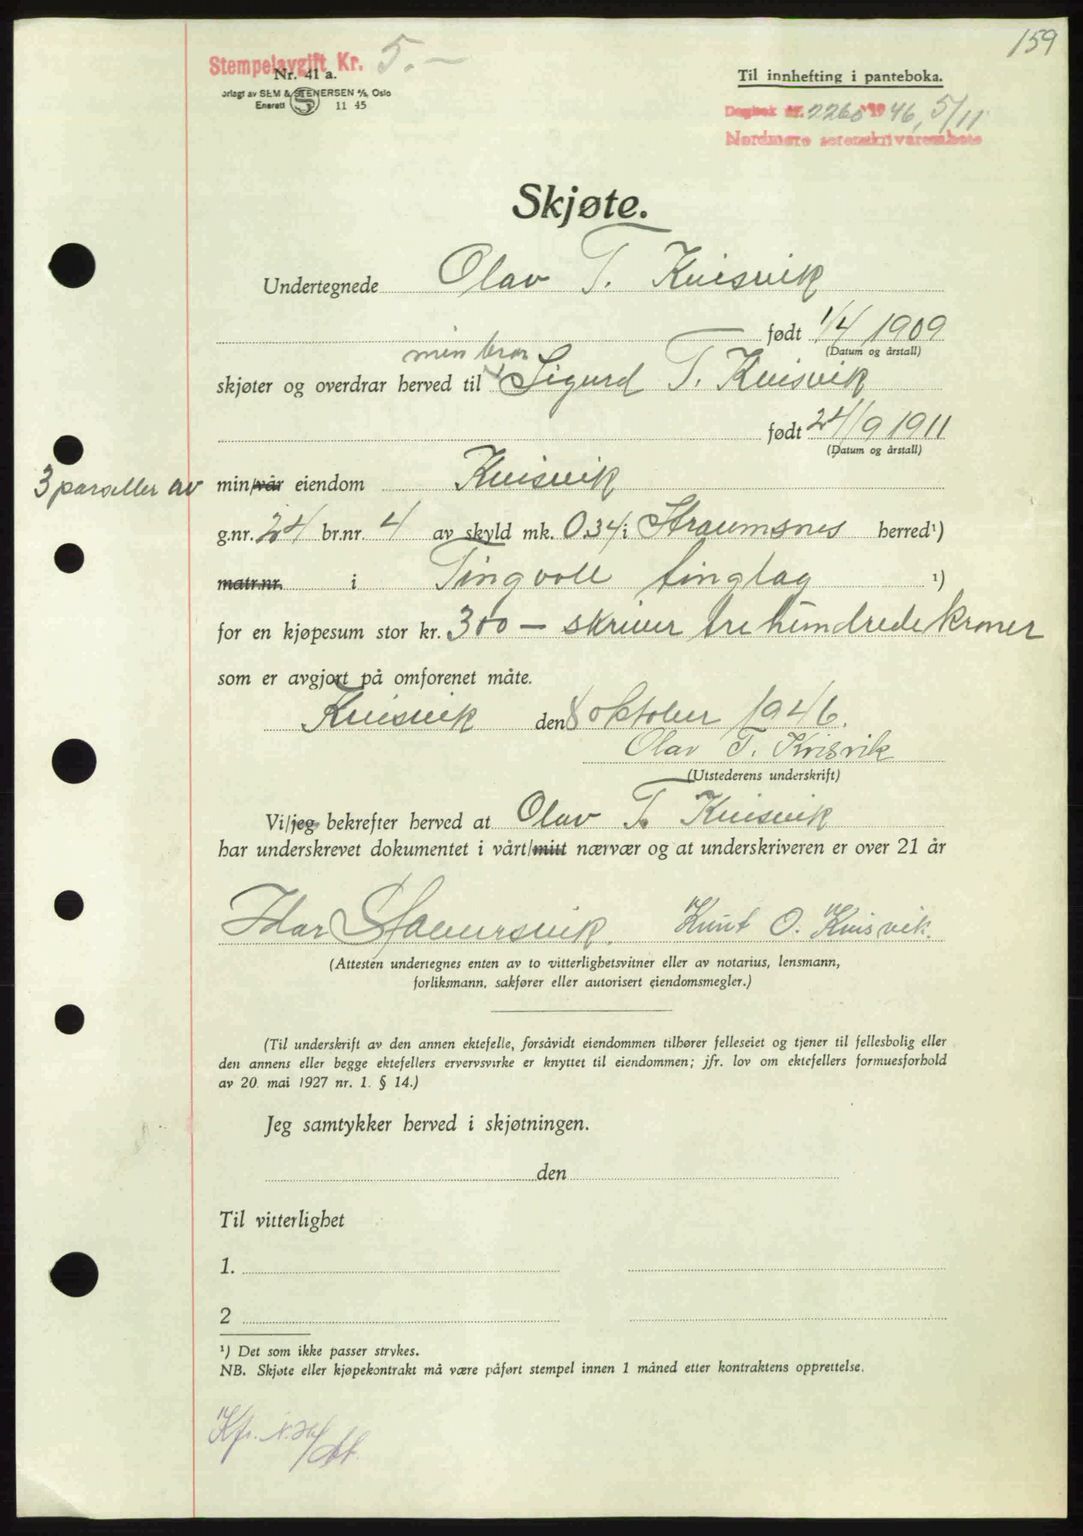 159
Stempelavgift Kr. 5.—
Nr. 41 a.
Forlagt av SEM & STENERSEN A/S, Oslo
Enerett S 11 45
Til innhefting i panteboka.
Dagbok nr. 2260 1946, 5/11
Nordmøre sorenskrivarembete
Skjøte.
Undertegnede Olav T. Kvisvik
født 1/4 1909
(Datum og årstall)
min bror
skjøter og overdrar herved til Sigurd T. Kvisvik
født 24/9 1911
(Datum og årstall)
3 parseller av min/vår eiendom Kvisvik
g.nr. 24 br.nr. 4 av skyld mk. 0.34 i Straumsnes herred¹)
matr.nr. i Tingvoll tinglag ¹)
for en kjøpesum stor kr. 300 — skriver tre hundrede kroner
som er avgjort på omforenet måte.
Kvisvik den 8 oktober 1946.
Olav T. Kvisvik
(Utstederens underskrift)
Vi/jeg bekrefter herved at Olav T. Kvisvik
har underskrevet dokumentet i vårt/mitt nærvær og at underskriveren er over 21 år
Idar Stavnesvik. Knut O. Kvisvik.
(Attesten undertegnes enten av to vitterlighetsvitner eller av notarius, lensmann,
forliksmann, sakfører eller autorisert eiendomsmegler.)
(Til underskrift av den annen ektefelle, forsåvidt eiendommen tilhører felleseiet og tjener til fellesbolig eller
den annens eller begge ektefellers ervervsvirke er knyttet til eiendommen; jfr. lov om ektefellers formuesforhold
av 20. mai 1927 nr. 1. § 14.)
Jeg samtykker herved i skjøtningen.
den
Til vitterlighet
1.
2
¹) Det som ikke passer strykes.
NB. Skjøte eller kjøpekontrakt må være påført stempel innen 1 måned etter kontraktens opprettelse.